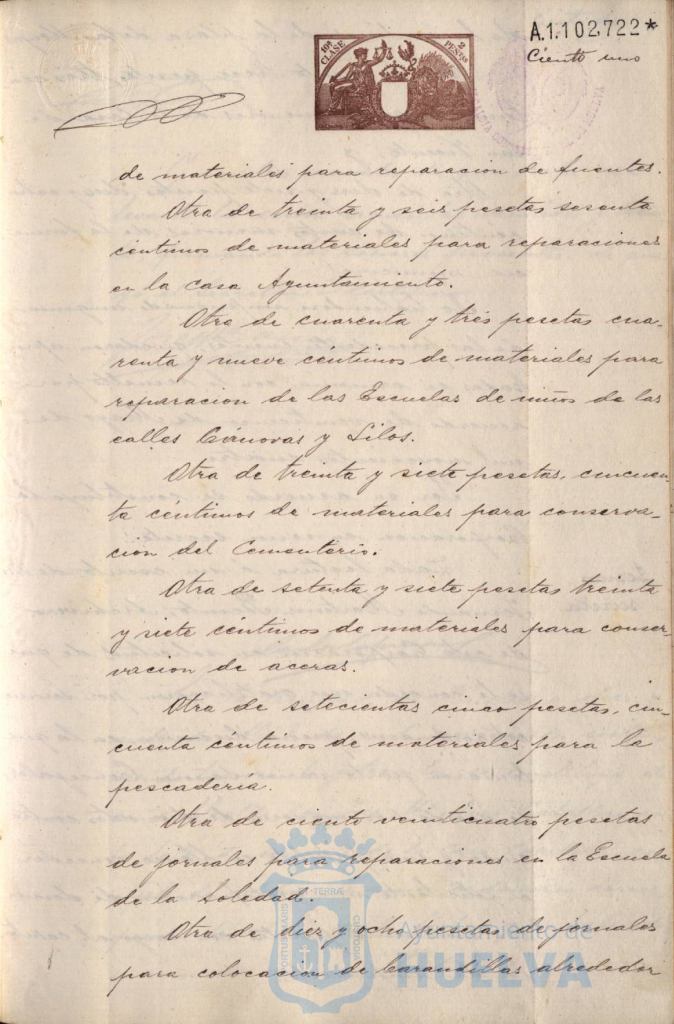 10ª CLASE
2 PESETAS
A.1.102,722*
Ciento uno
de materiales para reparacion de fuentes.
Otra de treinta y seis pesetas sesenta
céntimos de materiales para reparaciones
en la casa Ayuntamiento.
Otra de cuarenta y tres pesetas cua-
renta y nueve céntimos de materiales para
reparacion de las Escuelas de niños de las
calles Cánovas y Silos.
Otra de treinta y siete pesetas, cincuen-
ta céntimos de materiales para conserva-
cion del Cementerio.
Otra de setenta y siete pesetas treinta
y siete céntimos de materiales para conser-
vacion de aceras.
Otra de setecientas cinco pesetas, cin-
cuenta céntimos de materiales para la
pescadería.
Otra de ciento veinticuatro pesetas
de jornales para reparaciones en la Escuela
de la Soledad.
Otra de diez y ocho pesetas de jornales
para colocacion de barandillas alrededor
PORTUS MARIS
ET TERRÆ
CUSTODIA
Ayuntamiento de
HUELVA